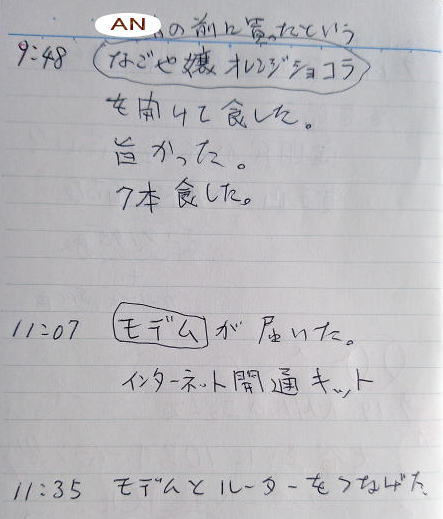 AN の前に買ったという
9:48 なごや嬢 オレンジショコラ
を開けて食した。
旨かった。
7本食した。
11:07 モデムが届いた。
インターネット開通キット
11:35 モデムとルーターをつなげた